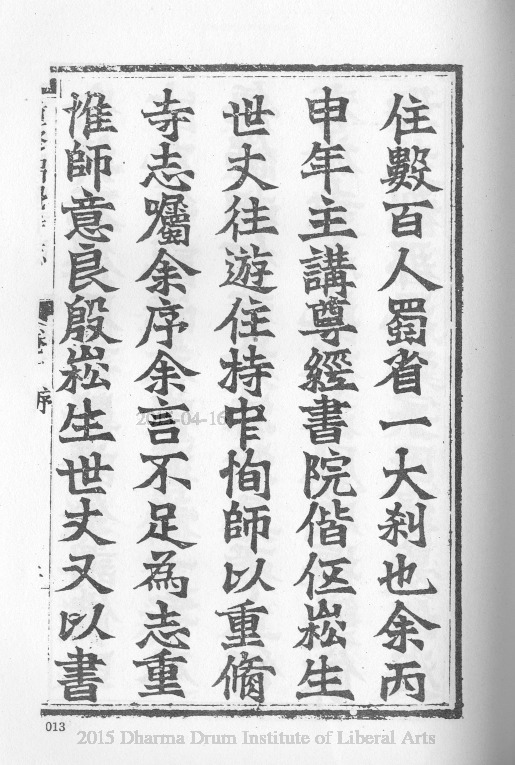 住數百人蜀省一大刹也余丙
申年主講尊經書院偕伍崧生
世丈往遊住持中恂師以重脩
寺志囑余序余言不足為志重
惟師意良殷崧生世丈又以書
序
013
2015 Dharma Drum Institute of Liberal Arts